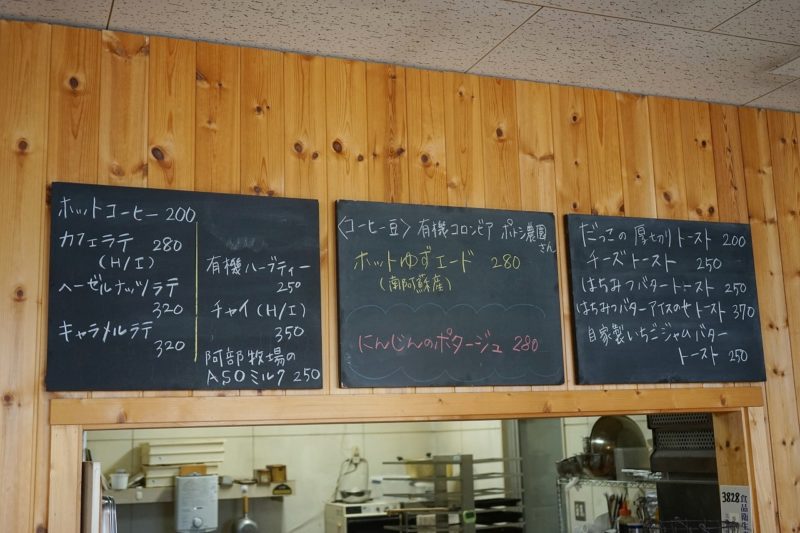 ホットコーヒー 200
カフェラテ 280
(H/I)
ヘーゼルナッツラテ
320
キャラメルラテ
320
有機ハーブティー
250
チャイ(H/I)
350
阿部牧場の
ASOミルク 250
〈コーヒー豆〉 有機コロンビア ポトシ農園
さん
ホットゆずエード 280
(南阿蘇産)
にんじんのポタージュ 280
だっこの厚切りトースト 200
チーズトースト 250
はちみつバタートースト 250
はちみつバターアイスのせトースト 370
自家製いちごジャムバター
トースト 250
3828
食品衛生